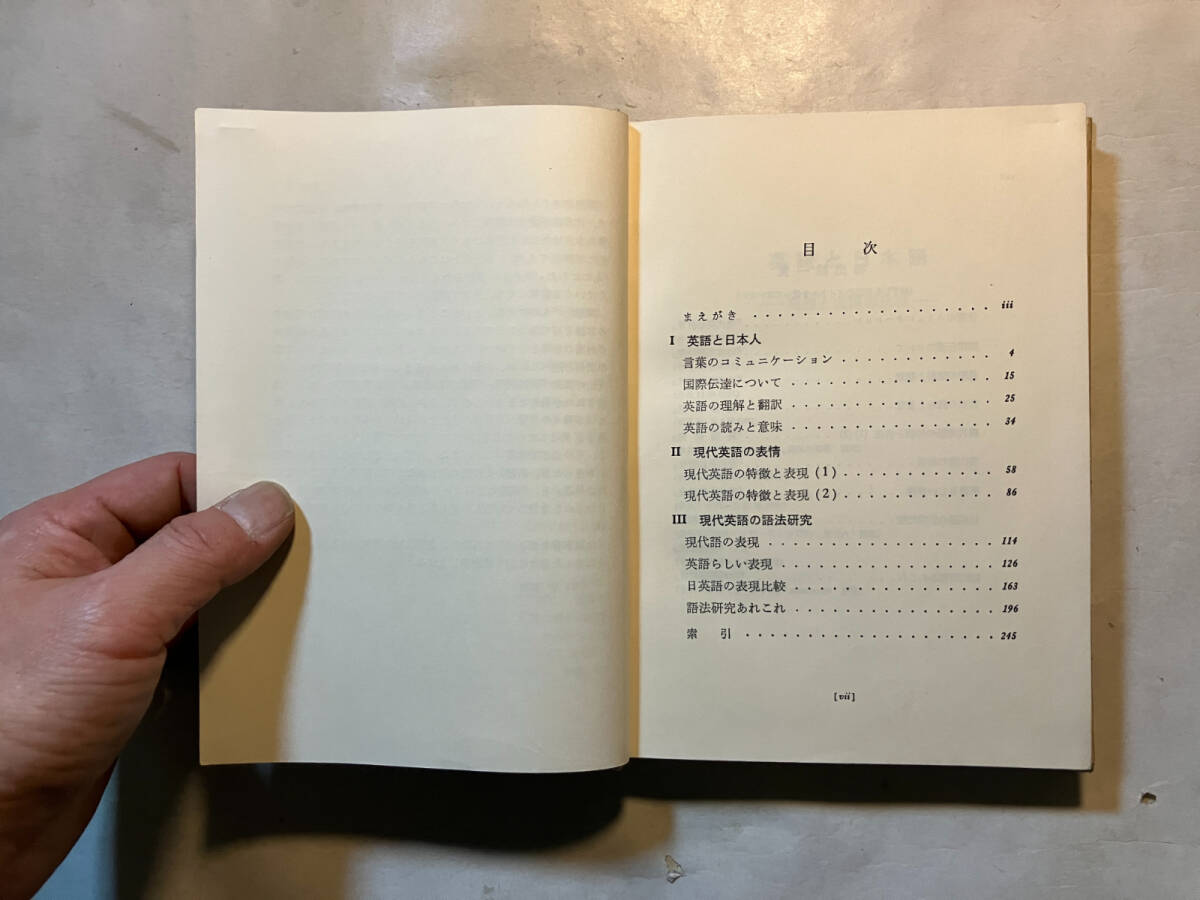 目 次
まえがき . . . . . . . . . . . . . . . . . . . iii
I 英語と日本人
言葉のコミュニケーション . . . . . . . . . . . . . 4
国際伝達について . . . . . . . . . . . . . . . . 15
英語の理解と翻訳 . . . . . . . . . . . . . . . . 25
英語の読みと意味 . . . . . . . . . . . . . . . . 34
II 現代英語の表情
現代英語の特徴と表現 (1) . . . . . . . . . . . . 58
現代英語の特徴と表現 (2) . . . . . . . . . . . . 86
III 現代英語の語法研究
現代語の表現 . . . . . . . . . . . . . . . . . . 114
英語らしい表現 . . . . . . . . . . . . . . . . . 126
日英語の表現比較 . . . . . . . . . . . . . . . . 163
語法研究あれこれ . . . . . . . . . . . . . . . . 196
索 引 . . . . . . . . . . . . . . . . . . . . 245
[vii]